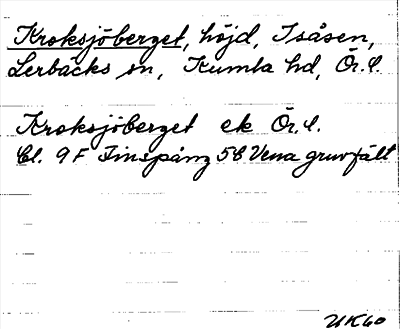 Kroksjöberget, höjd, Isåsen,
Lerbäcks sn, Kumla hd, Ör. l.
Kroksjöberget ek Ör. l.
Bl. 9F Finspång 5C Vena gruvfält
UK60